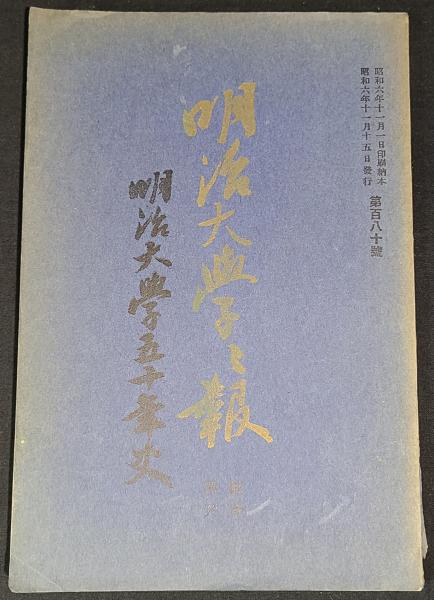 昭和六年十一月一日印刷納本
昭和六年十一月十五日發行
第百八十號
明治大學々報
明治大學五十年史